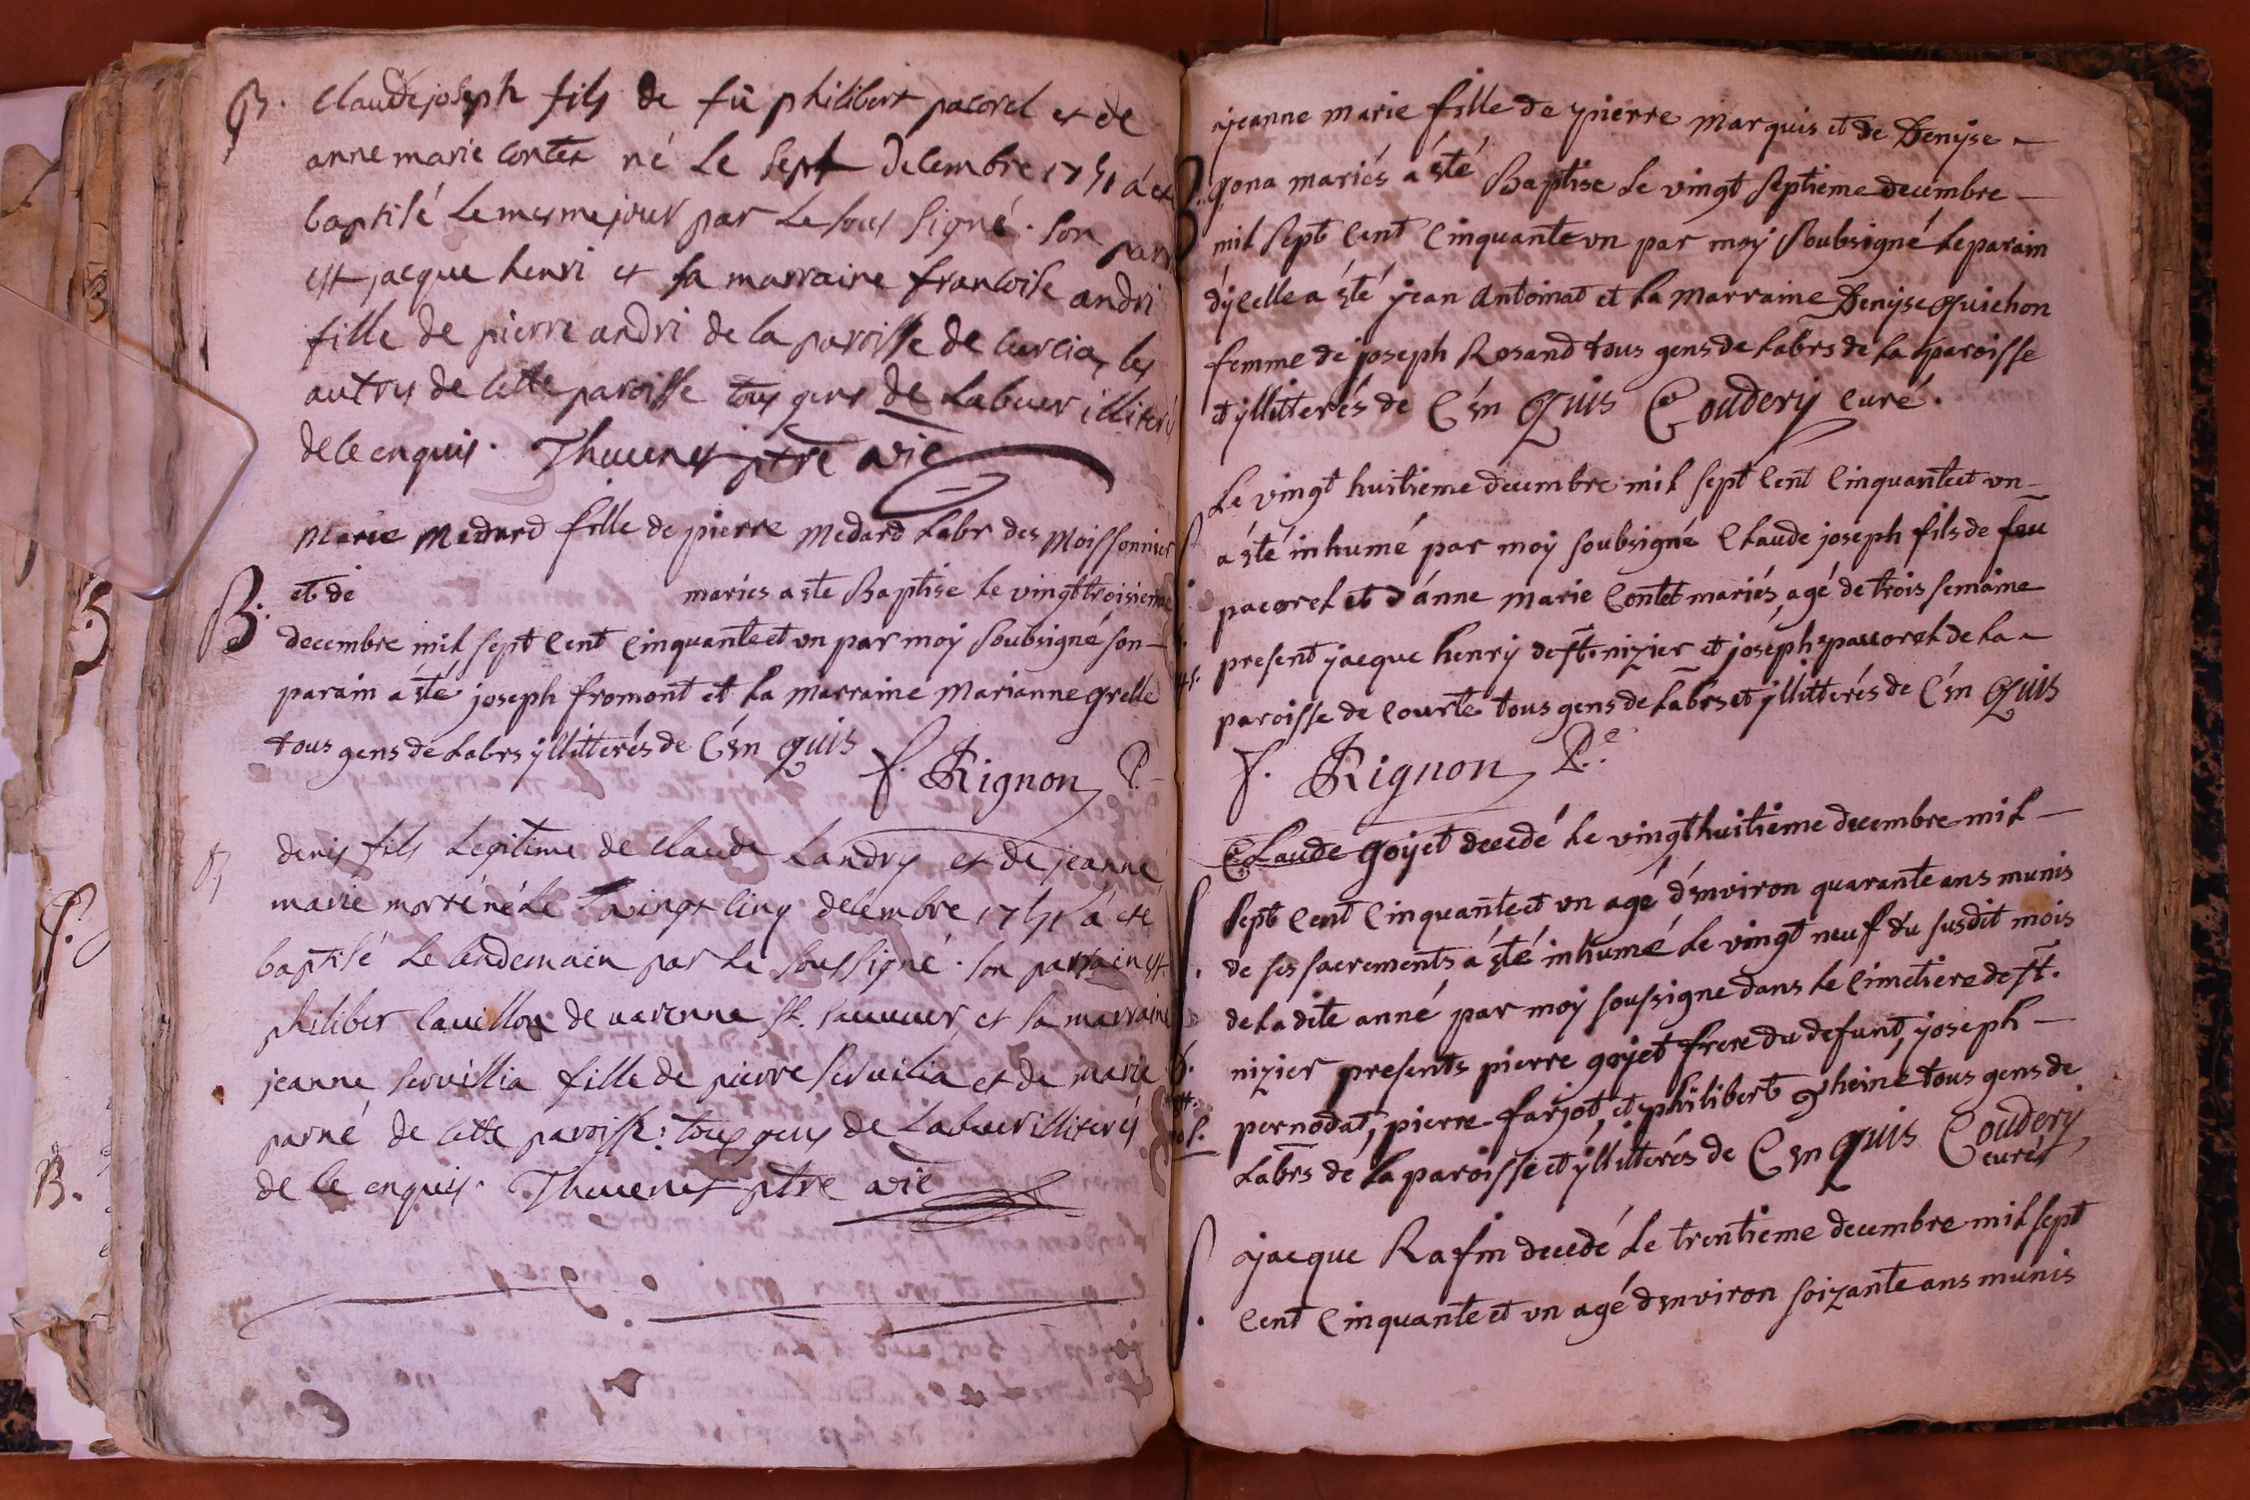 B. Claude joseph fils de fü philibert pacorel et de
anne marie contet né le sept decembre 1751 á eté
baptisé le mesme jour par le sous signé. son parr
est jacque henri et sa marraine francoise andri
fille de pierre andri de la paroisse de curcia, les
autres de cette paroisse tous gens de labeur illiterés
de ce enquis. Thuenet ptre vic
Marie Medard fille de pierre Medard Labr des Moissonnier
B. et de maries a ste Baptise le vingt troisieme
decembre mil sept cent cinquante et un par moy soubsigné son
parain a sté joseph fromont et la Marraine Marianne grelle
tous gens de Labrs yllitterés de c'en quis
f. Rignon P.
denis fils legitime de claude Landry et de jeanne
marie morré né le vingt cinq decembre 1751 á eté
baptisé le lendemain par le soussigné. son parrain est
philiber cauillon de uarenne st. sauueur et sa marraine
jeanne seruillia fille de pierre seruillia et de marie
parné de cette paroisse: tous gens de labeur illiterés
de ce enquis. Thuenet ptre vic
jeanne marie fille de pierre Marquis et de Denyse
B. gona mariés a ésté Baptise le vingt septieme decembre
mil sept cent cinquante un par moy soubsigné le parain
d'ycelle a ésté jean Antoinat et la Marraine Denyse Guichon
femme de joseph Rosand tous gens de Labrs de la paroisse
et yllitterés de c'en quis Coudery curé.
Le vingt huitieme decembre mil sept cent cinquante et un
a ésté inhumé par moy soubsigné Claude joseph fils de feu
pacorel et d'anne Marie Contet mariés, agé de trois semaine
present jacque henry de st. nizier et joseph paccorel de la
paroisse de courte tous gens de Labrs et yllitterés de c'en quis
f. Rignon P.e
Claude goyet decedé le vingt huitieme decembre mil
sept cent cinquante et un agé d'environ quarante ans munis
de ses sacrements a ésté inhumé le vingt neuf du susdit mois
de la dite anné par moy soussigne dans le cimetiere de st.
nizier presents pierre goyet frere du defunt, joseph
pernodat, pierre farjot, et philibert gheine tous gens de
Labrs de la paroisse et yllitterés de c'en quis Coudery
curé
jacque Rafin decedé le trentieme decembre mil sept
cent cinquante et un agé d'environ soizante ans munis